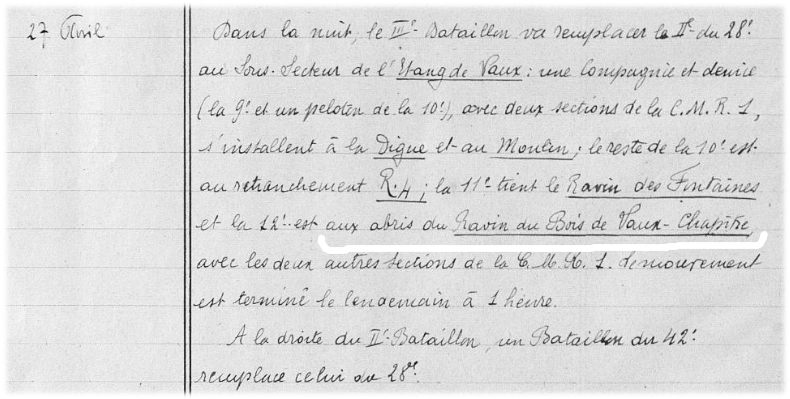 27 Avril
Dans la nuit, le IIIe Bataillon va remplacer le IIe du 28e
au Sous-Secteur de l'Etang de Vaux : une Compagnie et demie
(la 9e et un peloton de la 10e), avec deux sections de la C.M.R.1,
s'installent à la Digue et au Moulin ; le reste de la 10e est
au retranchement R.4 ; la 11e tient le Ravin des Fontaines
et la 12e est aux abris du Ravin du Bois de Vaux-Chapître,
avec les deux autres sections de la C.M.R.1. Le mouvement
est terminé le lendemain à 1 heure.
A la droite du IIe Bataillon, un Bataillon du 42e
remplace celui du 28e.